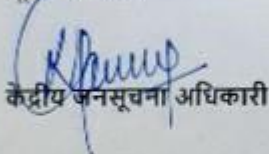 केंद्रीय जनसूचना अधिकारी